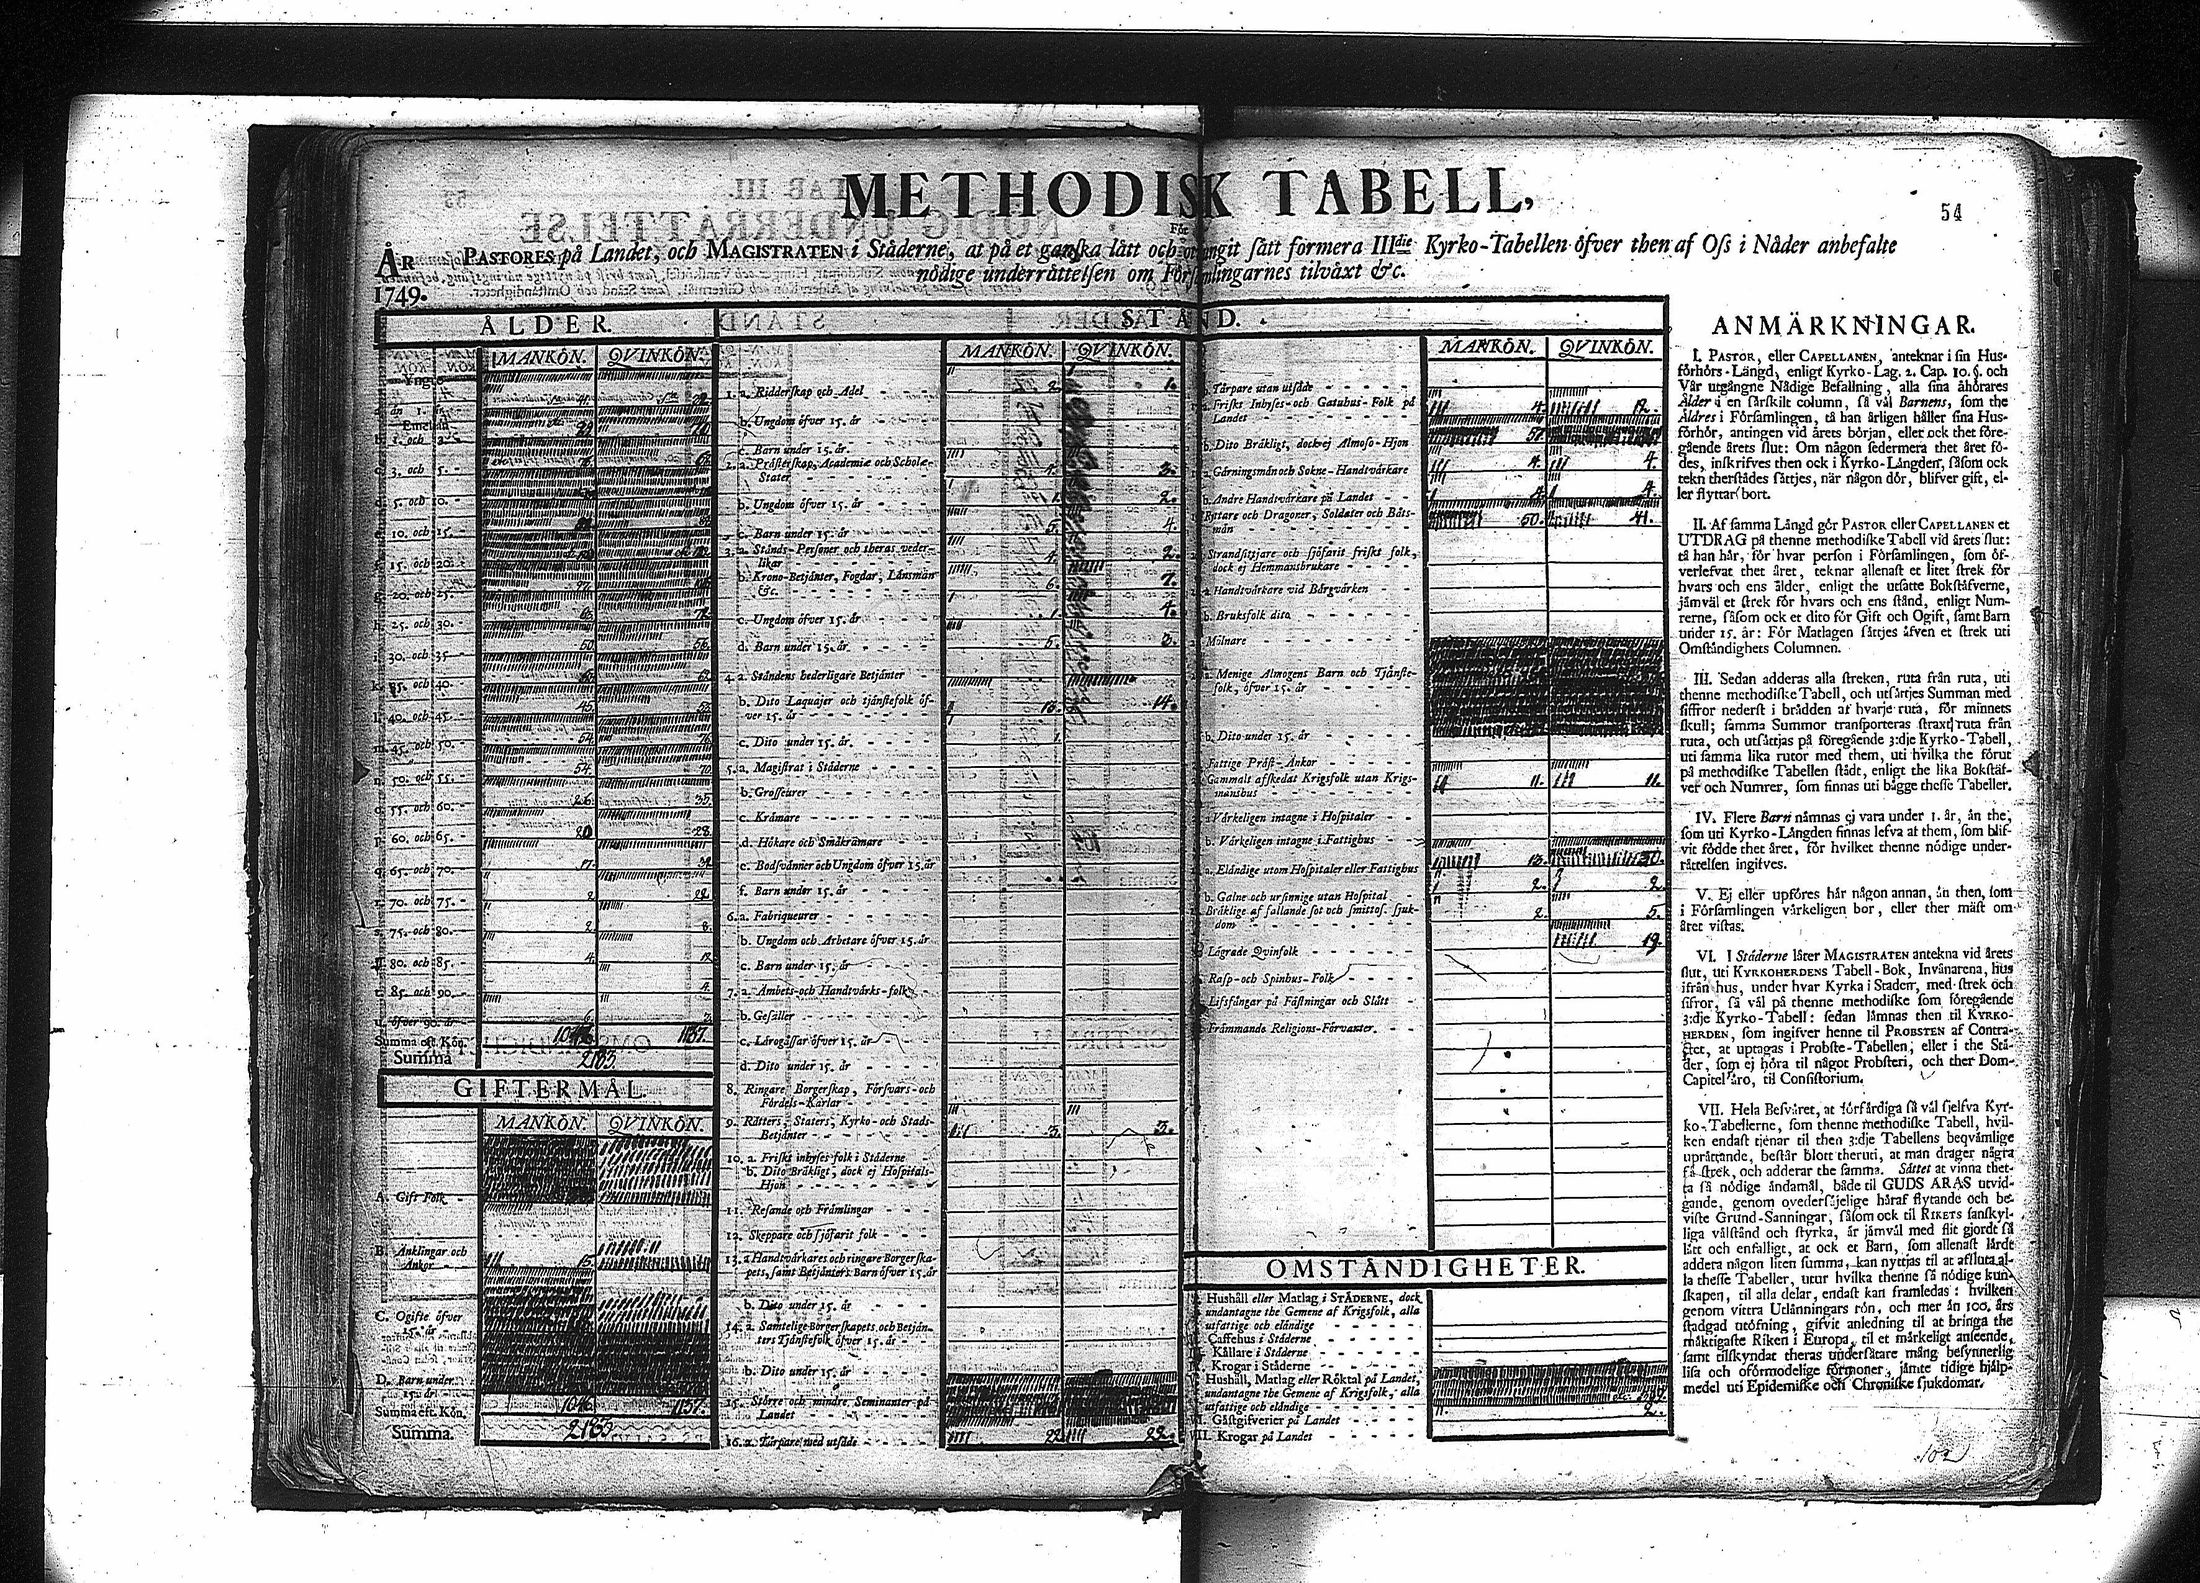 54
METHODISK TABELL,
För
PASTORES på Landet, och MAGISTRATEN i Städerne, at på et ganska lätt och otvungit sätt formera IIIdie Kyrko-Tabellen öfver then af Oss i Nåder anbefalte
nödige underrättelsen om Församlingarnes tilväxt &c.
ÅR
1749.
ÅLDER.
MANKÖN. QVINKÖN.
Yngre
än 1. år
Emellan
1. och 3.
3. och 5.
5. och 10.
10. och 15.
15. och 20.
20. och 25.
25. och 30.
30. och 35
35. och 40.
40. och 45.
45. och 50.
50. och 55.
55. och 60.
60. och 65.
65. och 70.
70. och 75.
75. och 80.
80. och 85.
85. och 90.
öfver 90. år
Summa eft. Kön. 1137.
Summa 2183.
GIFTERMÅL
MANKÖN. QVINKÖN.
A. Gift Folk
B. Änklingar och
Änkor 15.
C. Ogifte öfver
15. år
D. Barn under
15. år
Summa eft. Kön. 1046. 1137.
Summa. 2183
STÅND.
MANKÖN. QVINKÖN.
1. a. Ridderskap och Adel 2. 1.
b. Ungdom öfver 15. år
c. Barn under 15. år.
2. a. Prästerskap, Academiæ och Scholæ-
Stater 4. 3.
b. Ungdom öfver 15. år 1. 2.
c. Barn under 15. år 5. 4.
3. a. Stånds-Personer och theras veder-
likar 4. 2.
b. Krono-Betjänter, Fogdar, Länsmän
&c. 6. 7.
c. Ungdom öfver 15. år 1. 4.
d. Barn under 15. år. 5. 2.
4. a. Ståndens hederligare Betjänter
b. Dito Laquajer och tjänstefolk öf-
ver 15. år 14.
c. Dito under 15. år. 1.
5. a. Magistrat i Städerne
b. Grosseurer
c. Krämare
d. Hökare och Småkrämare
e. Bodsvänner och Ungdom öfver 15. år
f. Barn under 15. år
6. a. Fabriqueurer
b. Ungdom och Arbetare öfver 15. år
c. Barn under 15. år
7. a. Ämbets- och Handtvärks-folk
b. Gesäller
c. Lärogåssar öfver 15. år
d. Dito under 15. år
8. Ringare Borgerskap, Försvars- och
Fördels-Karlar
9. Rätters, Staters, Kyrko- och Stads-
Betjänter 3. 3.
10. a. Friskt inhyses folk i Städerne
b. Dito Bräkligt, dock ej Hospitals-
Hjon
11. Resande och Främlingar
12. Skeppare och sjöfarit folk
13. a. Handtvärkares och ringare Borgerska-
pets, samt Betjänters Barn öfver 15. år
b. Dito under 15. år
14. a. Samtelige Borgerskapets och Betjän-
ters Tjänstefolk öfver 15. år
b. Dito under 15. år
15. Större och mindre Seminanter på
Landet
16. a. Torpare med utsäde 22. 22.
MANKÖN. QVINKÖN.
Torpare utan utsäde
Friskt Inhyses- och Gatuhus-Folk på
Landet 4. 12.
b. Dito Bräkligt, dock ej Almoso-Hjon 57.
Gärningsmän och Sokne-Handtvärkare 4. 4.
b. Andre Handtvärkare på Landet 4.
Ryttare och Dragoner, Soldater och Båts-
män 50. 41.
Strandsittjare och sjöfarit friskt folk,
dock ej Hemmansbrukare
a. Handtvärkare vid Bärgvärken
b. Bruksfolk dito
Mölnare
a. Menige Almogens Barn och Tjänste-
folk, öfver 15. år
b. Dito under 15. år
Fattige Präst-Änkor
Gammalt afskedat Krigsfolk utan Krigs-
manshus 11. 11.
Värkeligen intagne i Hospitaler
b. Värkeligen intagne i Fattighus
a. Eländige utom Hospitaler eller Fattighus 13. 30.
b. Galne och ursinnige utan Hospital 2. 2.
Bräklige af fallande sot och smittos. sjuk-
dom 2. 5.
Lägrade Qvinfolk 19.
Rasp- och Spinhus-Folk
Lifsfångar på Fästningar och Slått
Främmande Religions-Förvanter.
OMSTÄNDIGHETER.
Hushåll eller Matlag i STÄDERNE, dock
undantagne the Gemene af Krigsfolk, alla
utfattige och eländige
Caffehus i Städerne
Källare i Städerne
Krogar i Städerne
Hushåll, Matlag eller Röktal på Landet,
undantagne the Gemene af Krigsfolk, alla
utfattige och eländige
VI. Gästgifverier på Landet 2.
VII. Krogar på Landet
ANMÄRKNINGAR.
I. PASTOR, eller CAPELLANEN, anteknar i sin Hus-
förhörs-Längd, enligt Kyrko-Lag. 2. Cap. 10. §. och
Vår utgångne Nådige Befallning, alla sina åhörares
Ålder i en särskilt column, så väl Barnens, som the
Äldres i Församlingen, tå han årligen håller sina Hus-
förhör, antingen vid årets början, eller ock thet före-
gående årets slut: Om någon sedermera thet året fö-
des, inskrifves then ock i Kyrko-Längden, såsom ock
tekn therstädes sättjes, när någon dör, blifver gift, el-
ler flyttar bort.
II. Af samma Längd gör PASTOR eller CAPELLANEN et
UTDRAG på thenne methodiske Tabell vid årets slut:
tå han här, för hvar person i Församlingen, som öf-
verlefvat thet året, teknar allenast et litet strek för
hvars och ens ålder, enligt the utsatte Bokstäfverne,
jämväl et strek för hvars och ens stånd, enligt Num-
rerne, såsom ock et dito för Gift och Ogift, samt Barn
under 15. år: För Matlagen sättjes äfven et strek uti
Omständighets Columnen.
III. Sedan adderas alla streken, ruta från ruta, uti
thenne methodiske Tabell, och utsättjes Summan med
siffror nederst i brädden af hvarje ruta, för minnets
skull; samma Summor transporteras straxt ruta från
ruta, och utsättjas på föregående 3:dje Kyrko-Tabell,
uti samma lika rutor med them, uti hvilka the förut
på methodiske Tabellen stådt, enligt the lika Bokstäf-
ver och Numrer, som finnas uti bägge thesse Tabeller.
IV. Flere Barn nämnas ej vara under 1. år, än the,
som uti Kyrko-Längden finnas lefva af them, som blif-
vit födde thet året, för hvilket thenne nödige under-
rättelsen ingifves.
V. Ej eller upföres här någon annan, än then, som
i Församlingen värkeligen bor, eller ther mäst om
året vistas.
VI. I Städerne låter MAGISTRATEN antekna vid årets
slut, uti KYRKOHERDENS Tabell-Bok, Invånarena, hus
ifrån hus, under hvar Kyrka i Staden, med strek och
sifror, så väl på thenne methodiske som föregående
3:dje Kyrko-Tabell: sedan lämnas then til KYRKO-
HERDEN, som ingifver henne til PROBSTEN af Contra-
ctet, at uptagas i Probste-Tabellen, eller i the Stä-
der, som ej höra til något Probsteri, och ther Dom-
Capitel äro, til Consistorium.
VII. Hela Besväret, at förfärdiga så väl sjelfva Kyr-
ko-Tabellerne, som thenne methodiske Tabell, hvil-
ken endast tjenar til then 3:dje Tabellens beqvämlige
uprättande, består blott theruti, at man drager några
få strek, och adderar the samma. Sättet at vinna thet-
ta så nödige ändamål, både til GUDS ÄRAS utvid-
gande, genom ovedersäjelige häraf flytande och be-
viste Grund-Sanningar, såsom ock til RIKETS sanskyl-
liga välstånd och styrka, är jämväl med flit gjordt så
lätt och enfalligt, at ock et Barn, som allenast lärdt
addera någon liten summa, kan nyttjas til at afsluta al-
la thesse Tabeller, utur hvilka thenne så nödige kun-
skapen, til alla delar, endast kan framledas: hvilken
genom vittra Utlänningars rön, och mer än 100. års
stadgad utöfning, gifvit anledning til at bringa the
mäktigaste Riken i Europa, til et märkeligt anseende,
samt tilskyndat theras undersåtare mång besynnerlig
lisa och oförmodelige förmoner, jämte tidige hjälp-
medel uti Epidemiske och Chroniske sjukdomar.
102